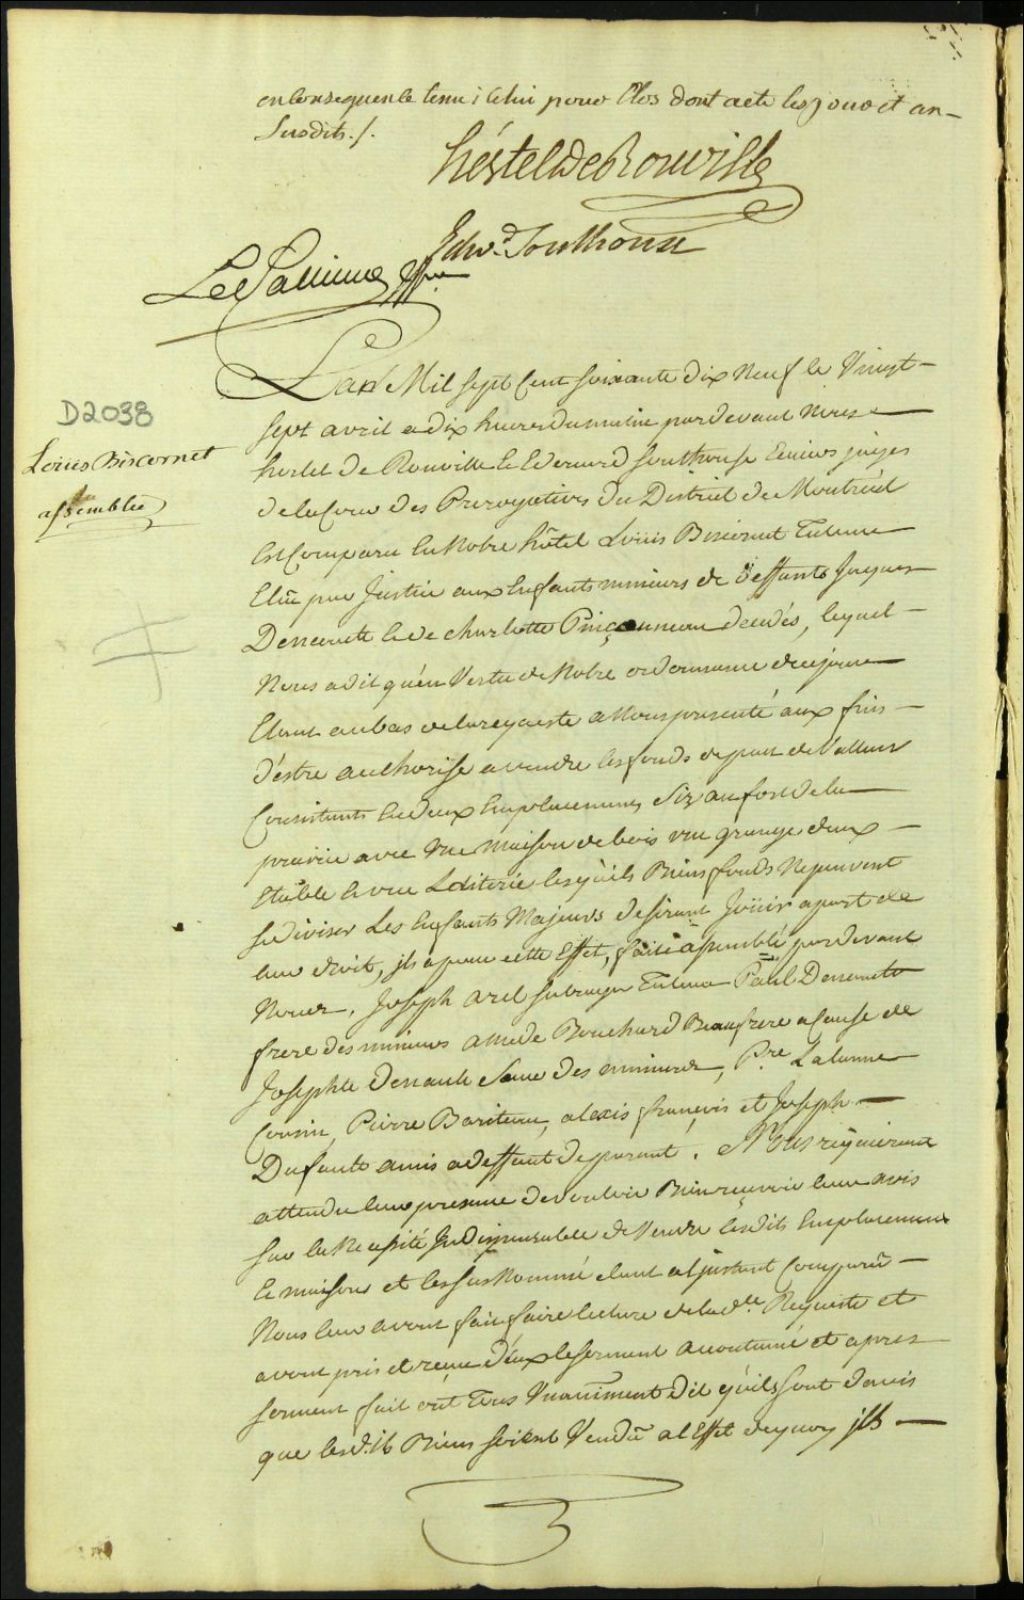 en Consequence tenu icelui pour Clos dont acte les jour et an
Susdits ./.
hértel de Rouville
Edwd. Southouse
Lee Pallieur Gffier
D2038
Louis Biscornet
assemblée
L'an Mil sept Cent soixante dix Neuf le Vingt
sept avril a dix heures du matin pardevant Nous
hertel de Rouville & Edouard Southouse Ecuiers juges
de la Cour des Prerogatives du District de Montreal
Est Comparu En Notre hôtel Louis Biscornet Tuteur
Elû par Justice aux Enfants mineurs de deffunts Jacques
Deneault & de charlotte Pinçonneau decedés, lequel
Nous a dit qu'en Vertu de Notre ordonnance de ce jour
Etant au bas de la requeste a Nous presenté aux fins
d'estre authorise a vendre les fonds de peu de Valleur
Consistants En deux Emplacements Siz au fort de la
prairie avec Une maison de bois une grange deux
Etable & une Laiterie lesquels Biens fonds Ne peuvent
se diviser Les Enfants Majeurs desirant Jöüir apart de
leur droit, jls a pour cette Effet, faite assemblé par devant
Nous, Joseph Arel subroger Tuteur Paul Deneaute
frere des mineurs amede Bouchard Beaufrere a Cause de
Josephte Denault Soeur des mineurs, Pre. Lalanne
Cousin, Pierre Bariteau, alexis françois et Joseph
Dufaults amis a deffaut de parent. Nous requierant
attendu leur presence de vouloir Bien recevoir leur avis
sur la Necessité Jndispensable de Vendre lesdits Emplacements
& maisons et les sus Nommé etant a l'jnstant Comparû
Nous leur avons fait faire lecture de la dte. Requeste et
avons pris et reçue d'eux le serment accoutumé et apres
serment fait ont Tous Unaniment Dit qu'ils sont d'avis
que lesdits Biens soient Vendû a l'Effet de quoy jls